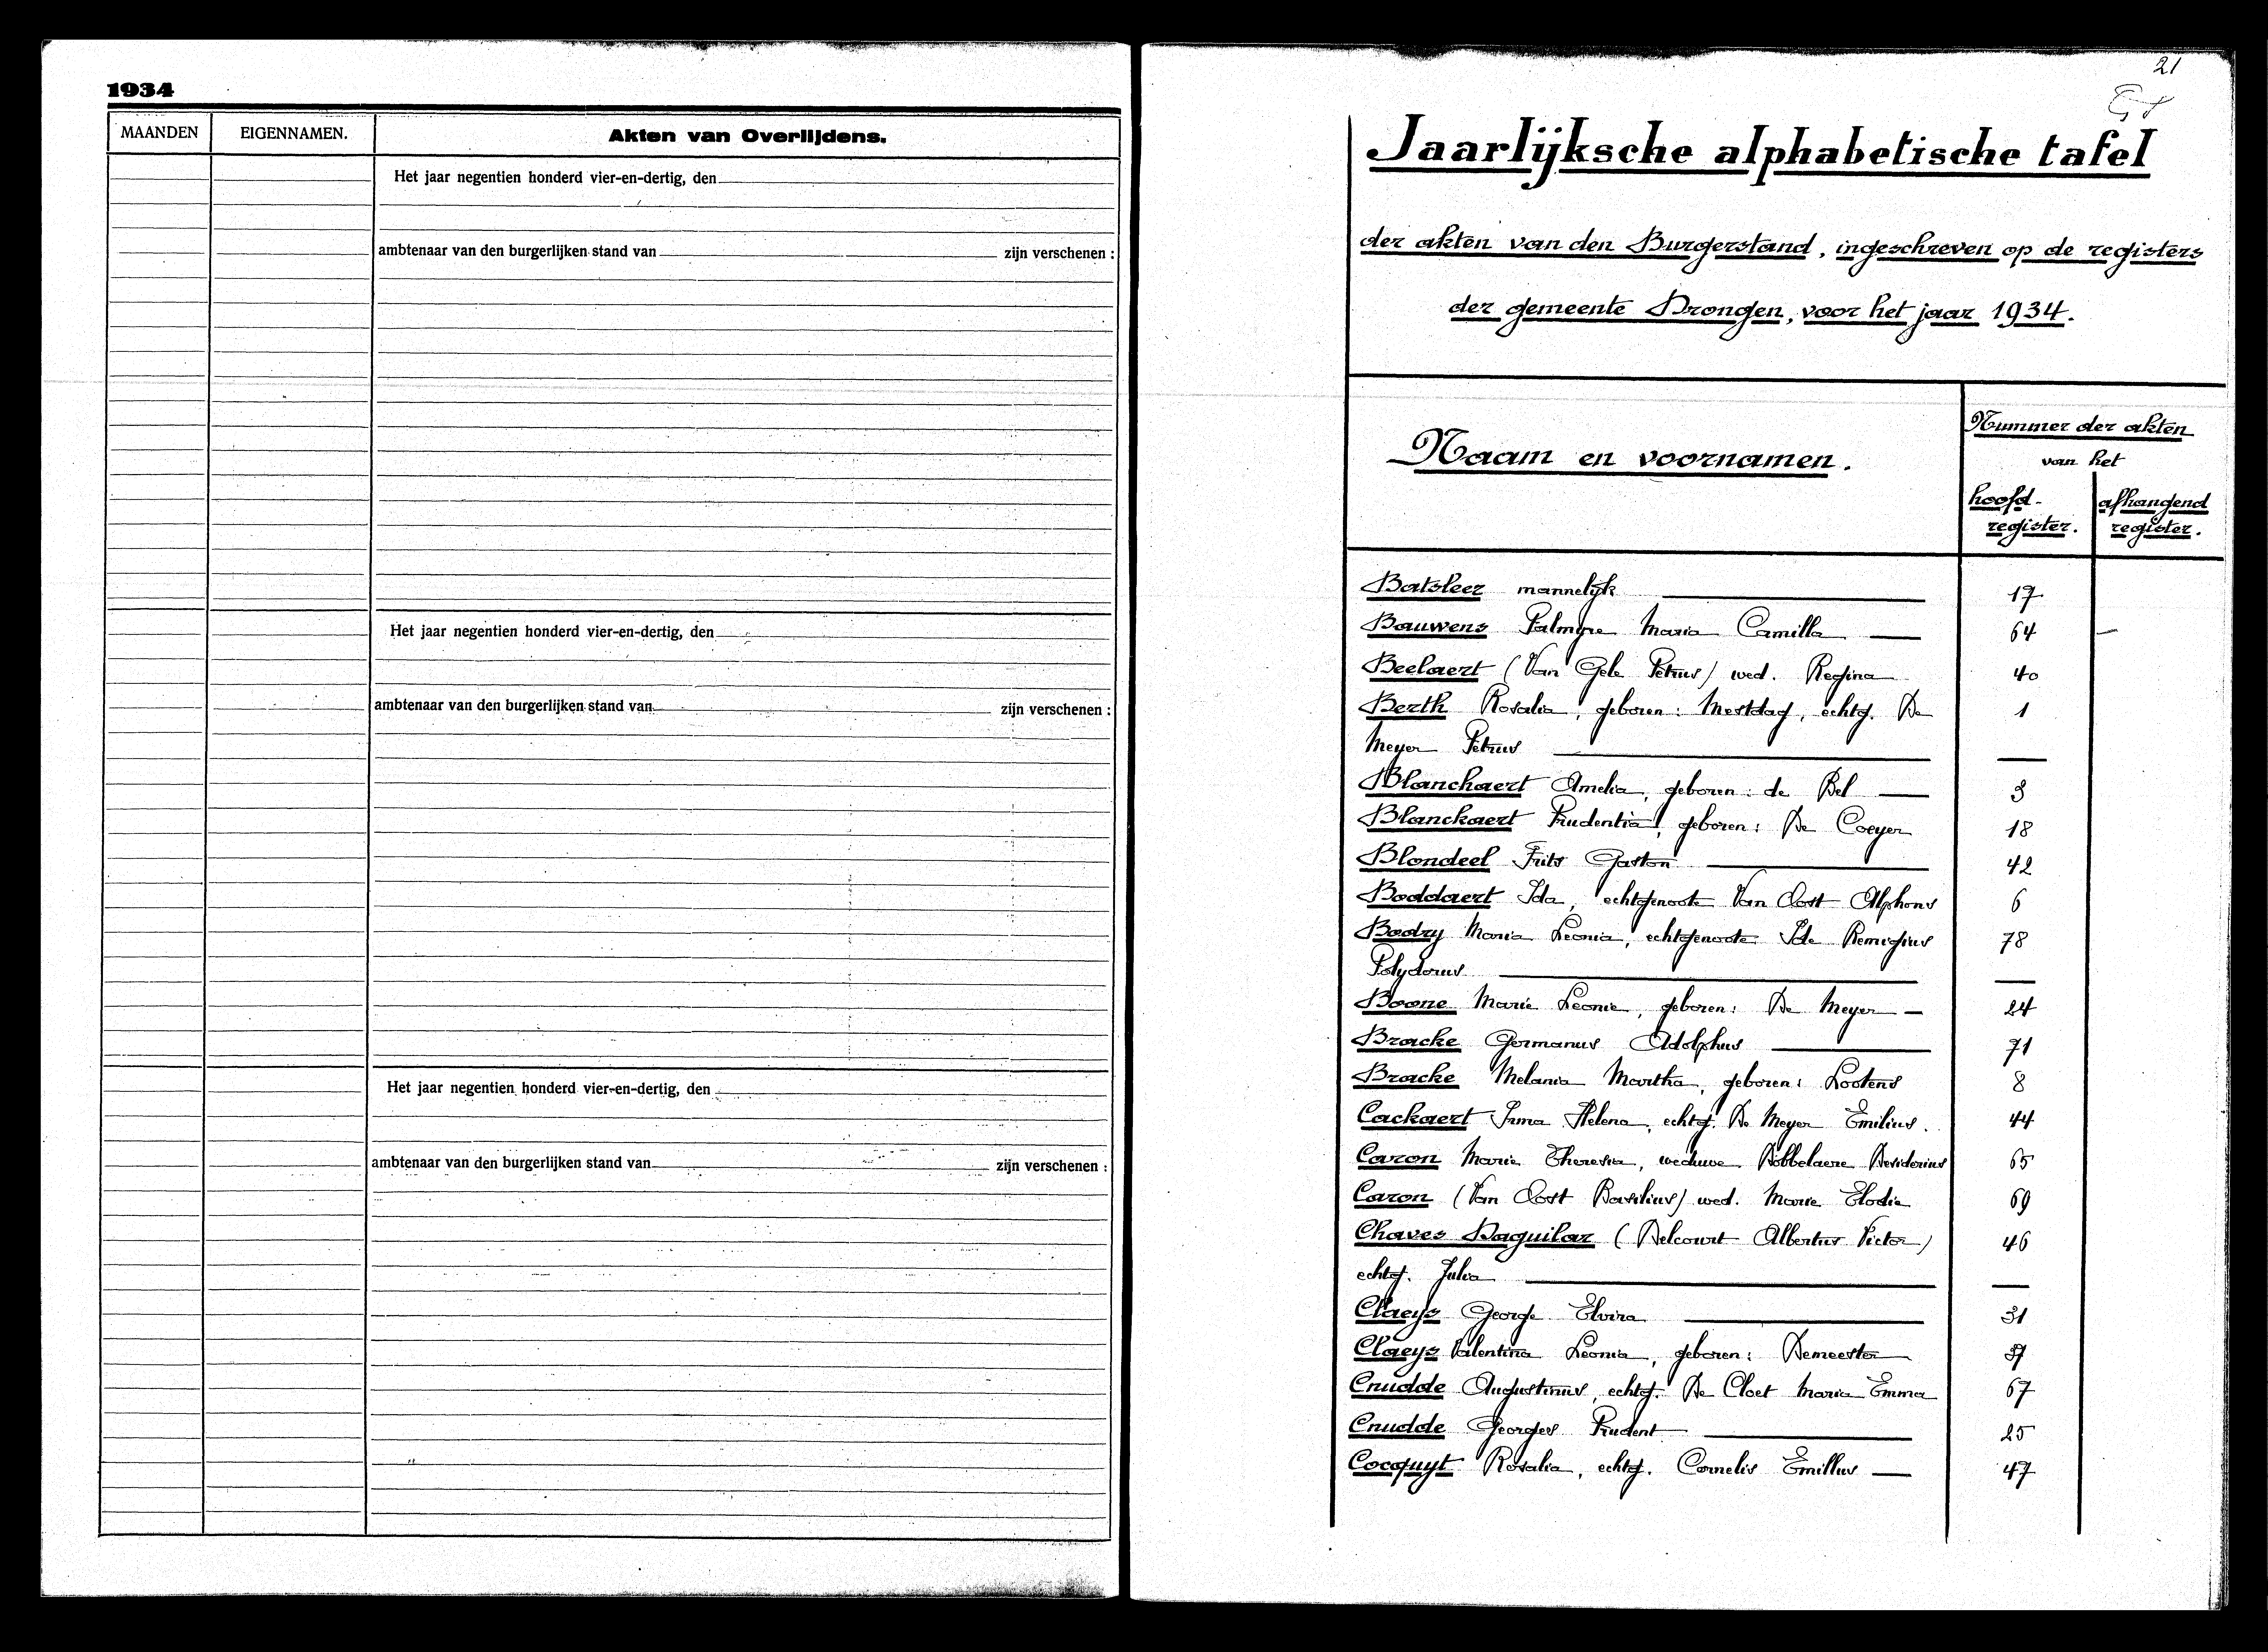 1934
MAANDEN EIGENNAMEN. Akten van Overlijdens.
Het jaar negentien honderd vier-en-dertig, den
ambtenaar van den burgerlijken stand van zijn verschenen :
Het jaar negentien honderd vier-en-dertig, den
ambtenaar van den burgerlijken stand van zijn verschenen :
Het jaar negentien honderd vier-en-dertig, den
ambtenaar van den burgerlijken stand van zijn verschenen :
21
Jaarlijksche alphabetische tafel
der akten van den Burgerstand, ingeschreven op de registers
der gemeente Drongen, voor het jaar 1934.
Naam en voornamen.
Nummer der akten
van het
hoofd- afhangend
register. register.
Batsleer mannelijk 17
Bauwens Palmyre Maria Camilla — 64 —
Beelaert (Van Gele Petrus) wed. Regina 40
Berth Rosalia, geboren: Mestdag, echtg. De 1
Meyer Petrus —
Blanchaert Amelia, geboren: de Bel — 3
Blanckaert Prudentia, geboren: De Coeyer 18
Blondeel Frits Gaston 42
Boddaert Ida, echtgenoote Van Oost Alphons 6
Bodry Maria Leonia, echtgenoote Ide Remigius 78
Polydorus —
Boone Marie Leonie, geboren: De Meyer — 24
Bracke Germanus Adolphus 71
Bracke Melania Martha, geboren: Lootens 8
Cackaert Irma Helena, echtg. De Meyer Emilius. 44
Caron Marie Theresia, weduwe Dobbelaere Desiderius 65
Caron (Van Oost Basilius) wed. Marie Elodie 69
Chaves Daguilar (Delcourt Albertus Victor) 46
echtg. Julia —
Claeys George Elvira 31
Claeys Valentina Leonia, geboren: Demeester
Cnudde Augustinus, echtg. De Cloet Maria Emma 67
Cnudde Georges Prudent 25
Cocquyt Rosalia, echtg. Cornelis Emillus — 47